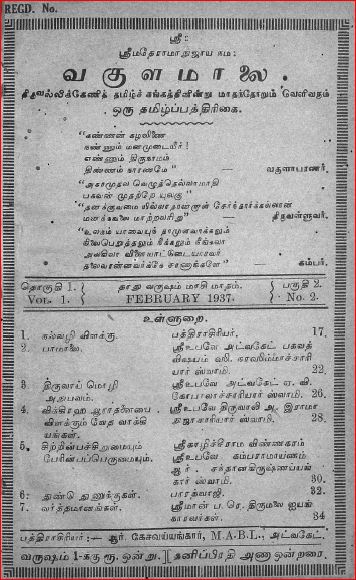 REGD. No.
ஸ்ரீ:
ஸ்ரீமதேராமாநுஜாய நம:
வகுளமாலை.
திருவல்லிக்கேணித் தமிழ்ச் சங்கத்தினின்று மாதந்தோறும் வெளிவரும்
ஒரு தமிழ்ப்பத்திரிகை.
"கண்ணன் கழலிணை
நண்ணும் மனமுடையீர்!
எண்ணும் திருநாமம்
திண்ணம் நாரணமே" — வகுளாபரணர்.
"அகரமுதல வெழுத்தெல்லாமாதி
பகவன் முதற்றே யுலகு"
"தனக்குவமை யில்லாதான்றாள் சேர்ந்தார்க்கல்லான
மனக்கவலை மாற்றலரிது" — திருவள்ளுவர்.
"உலகம் யாவையுந் தாமுளவாக்கலும்
நிலைபெறுத்தலும் நீக்கலும் நீங்கலா
அலகிலா விளையாட்டுடையாரவர்
தலைவரன்னவர்க்கே சரணாங்களே" — கம்பர்.
தொகுதி 1. தாது வருஷம் மாசி மாதம். பகுதி 2.
VOL. 1. FEBRUARY 1937. No. 2.
உள்ளுறை.
1. கல்வழி விளக்கு. பத்திராதிபர், 17.
2. பாமாலை. ஸ்ரீஉபவே அட்வகேட் பகவத்
விஷயம் வி. நரஸிம்மாச்சாரி
யார் ஸ்வாமி. 22.
3. திருவாய் மொழி ஸ்ரீஉபவே அட்வகேட் ஏ. வி.
அநுபவம். கோபாலாச்சாரியார் ஸ்வாமி. 26.
4. விக்ரஹ ஆராதனையை ஸ்ரீஉபவே திருவாலி அ. இராமா
விளக்கும் வேத வாக்கி நுஜாசாரியார் ஸ்வாமி. 28.
யங்கள்.
5. சிற்றின்பச்சிறுமையும் ஸ்ரீகாழிச்சீராம விண்ணகரம்
பேரின்பப்பெருமையும். ஸ்ரீஉபவே கம்பராமாயணம்
ஆர். சந்தானகிருஷ்ணய்யங்
கார் ஸ்வாமி 30.
6. துண்டு துணுக்குகள். பாரத்வாஜி. 32.
7. வர்த்தமானங்கள். ஸ்ரீமான் ப. ரெ. திருமலை ஐயங்
காரவர்கள். 34
பத்திராதிபர்:— ஆர். கேசவய்யங்கார், M.A.B.L., அட்வகேட்.
வருஷம் 1-க்கு ரூ. ஒன்று.] [தனிப்பிரதி அணா ஒன்றரை.